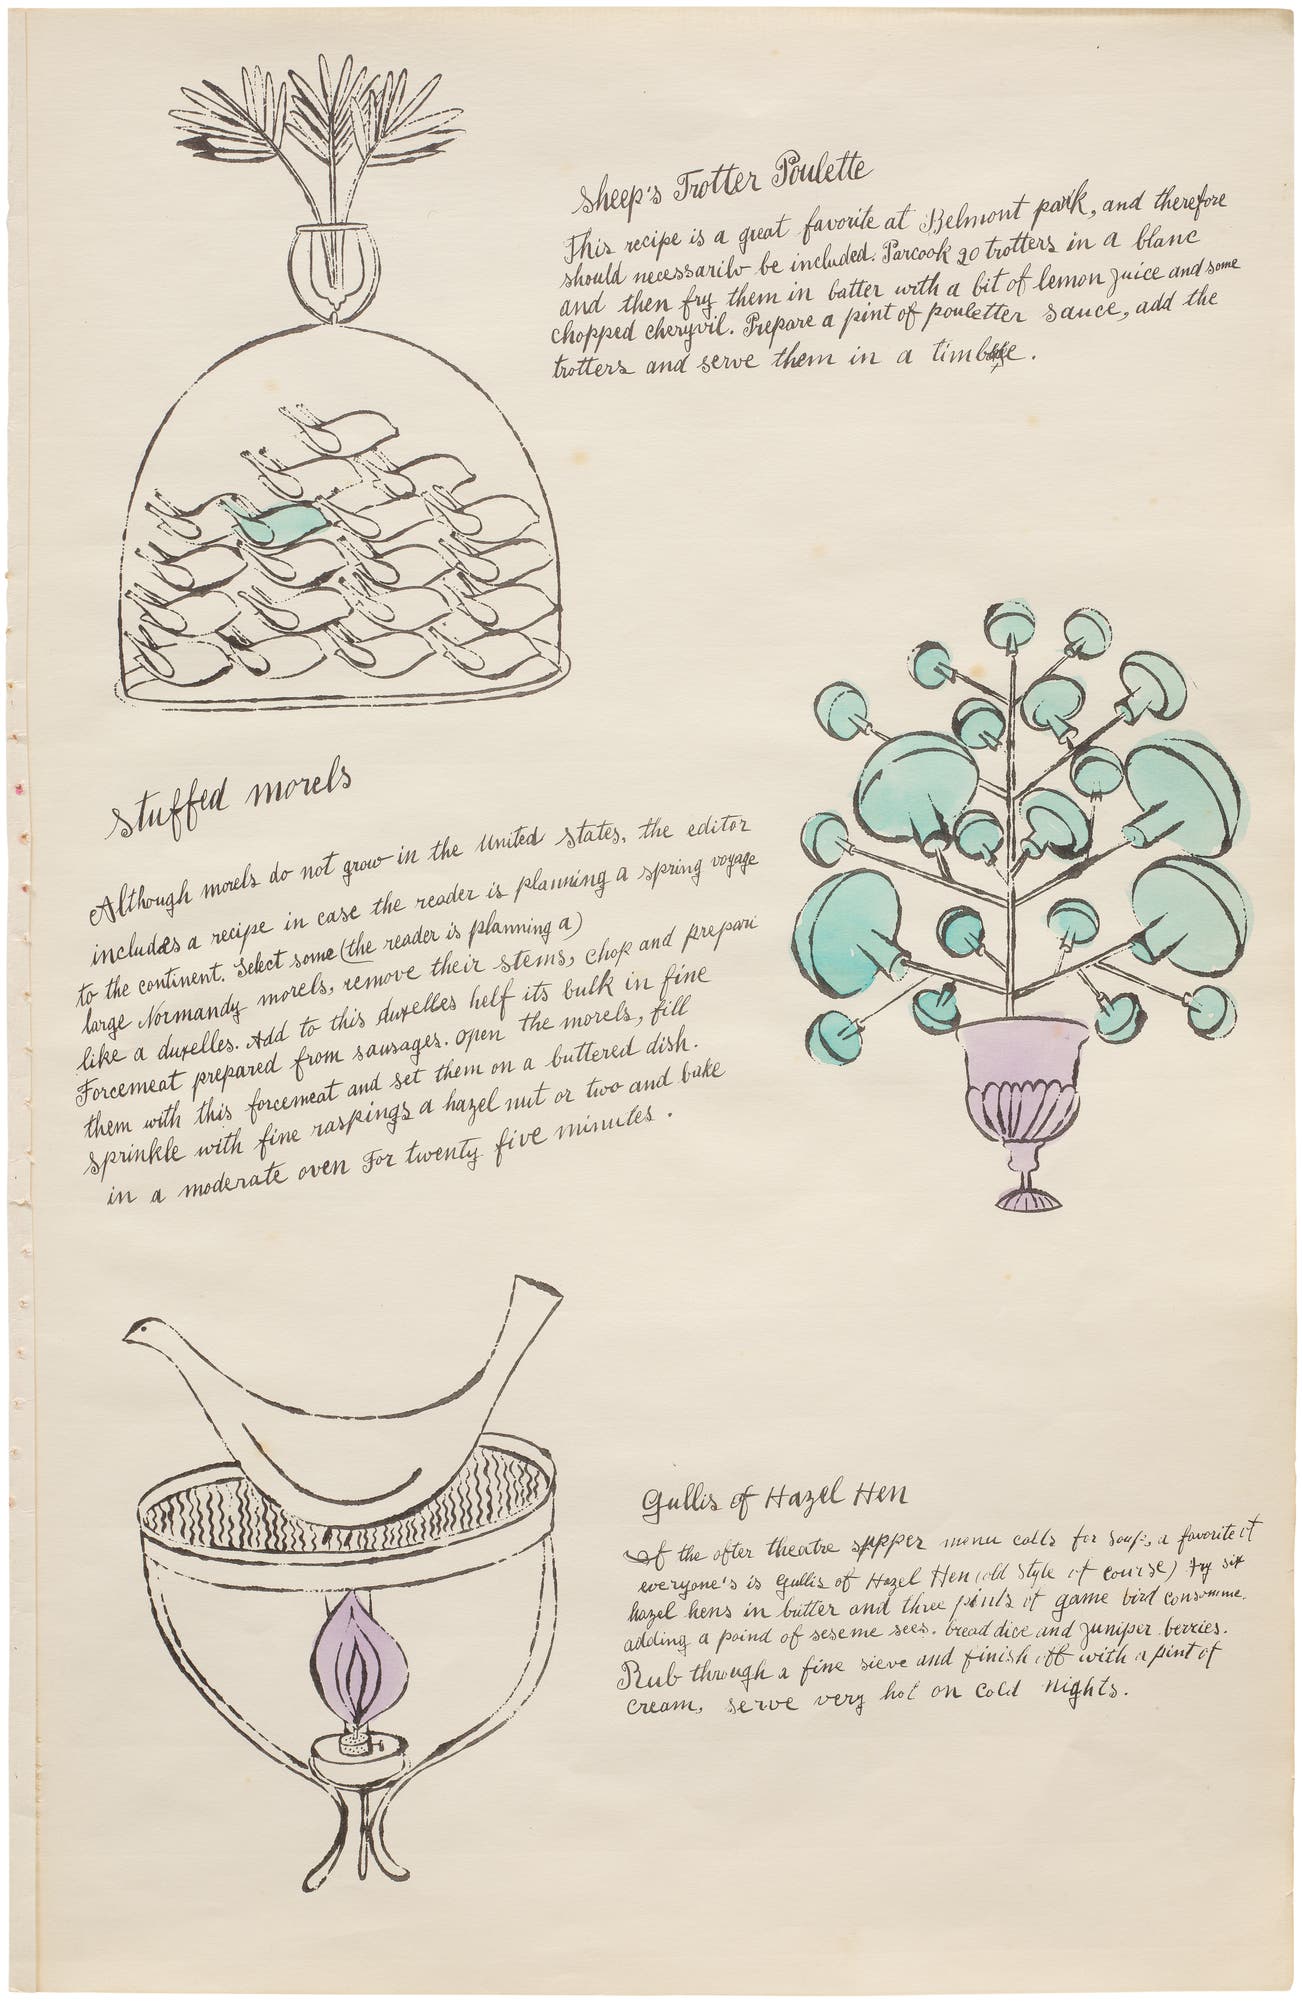 Sheep's Trotter Poulette
This recipe is a great favorite at Belmont park, and therefore
should necessarilv be included. Parcook 20 trotters in a blanc
and then fry them in batter with a bit of lemon juice and some
chopped cheryvil. Prepare a pint of pouletter sauce, add the
trotters and serve them in a
Stuffed morels
Although morels do not grow in the United States, the editor
includes a recipe in case the reader is planning a spring voyage
to the continent. Select some (the reader is planning a)
large Normandy morels, remove their stems, chop and prepari
like a duxelles. Add to this duxelles helf its bulk in fine
Forcemeat prepared from sausages. open the morels, fill
them with this forcemeat and set them on a buttered dish.
Sprinkle with fine raspings a hazel nut or two and bake
in a moderate oven For twenty five minutes.
Gullis of Hazel Hen
If the ofter theatre supper menu calls for soup, a favorite of
everyone's is Gullis of Hazel Hen (old style of course) fry six
hazel hens in butter and three pints of game bird consomme,
adding a poind of seseme sees. bread dice and juniper berries.
Rub through a fine sieve and finish off with a pint of
cream, serve very hot on cold nights.